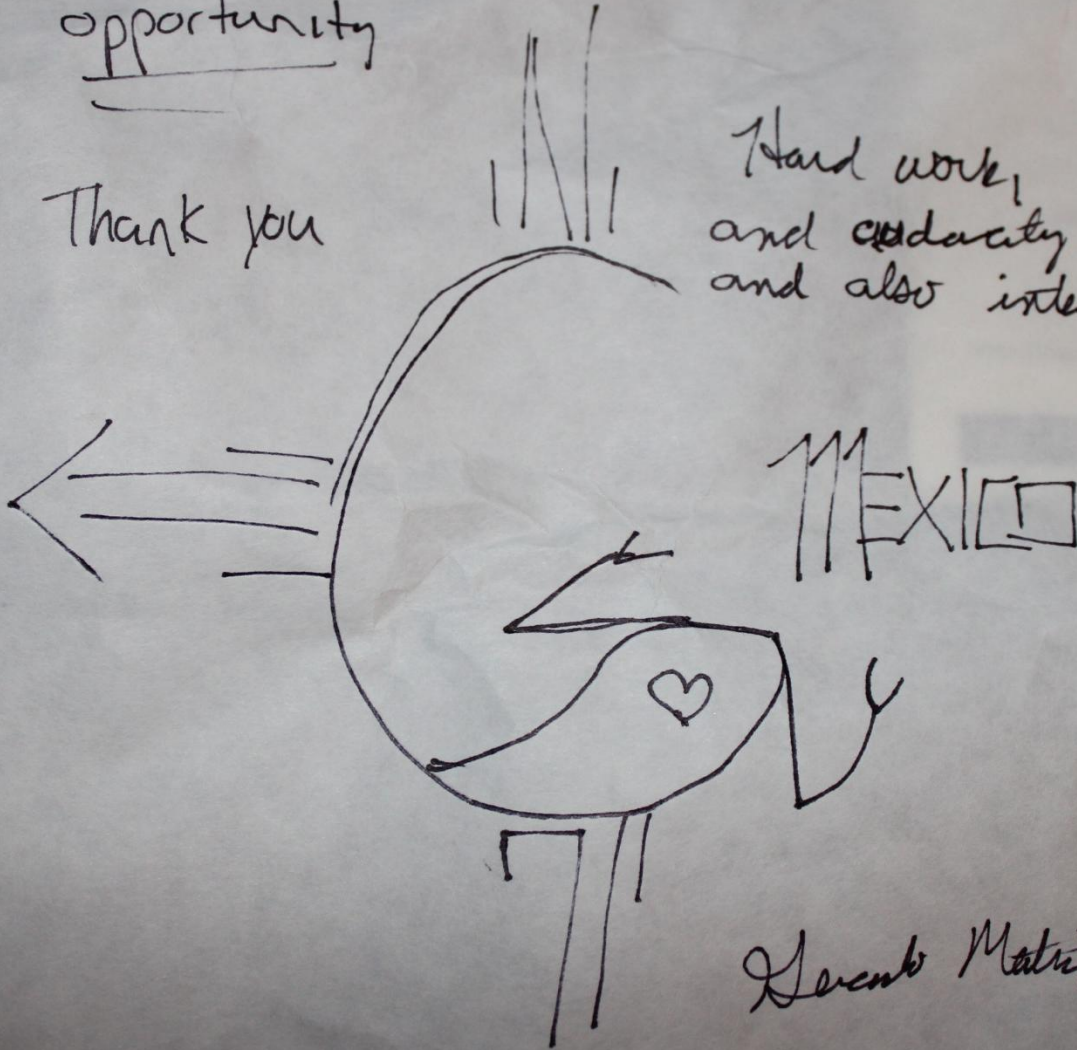 opportunity
Thank you
Hard work,
and audacity
and also inte
MEXICO